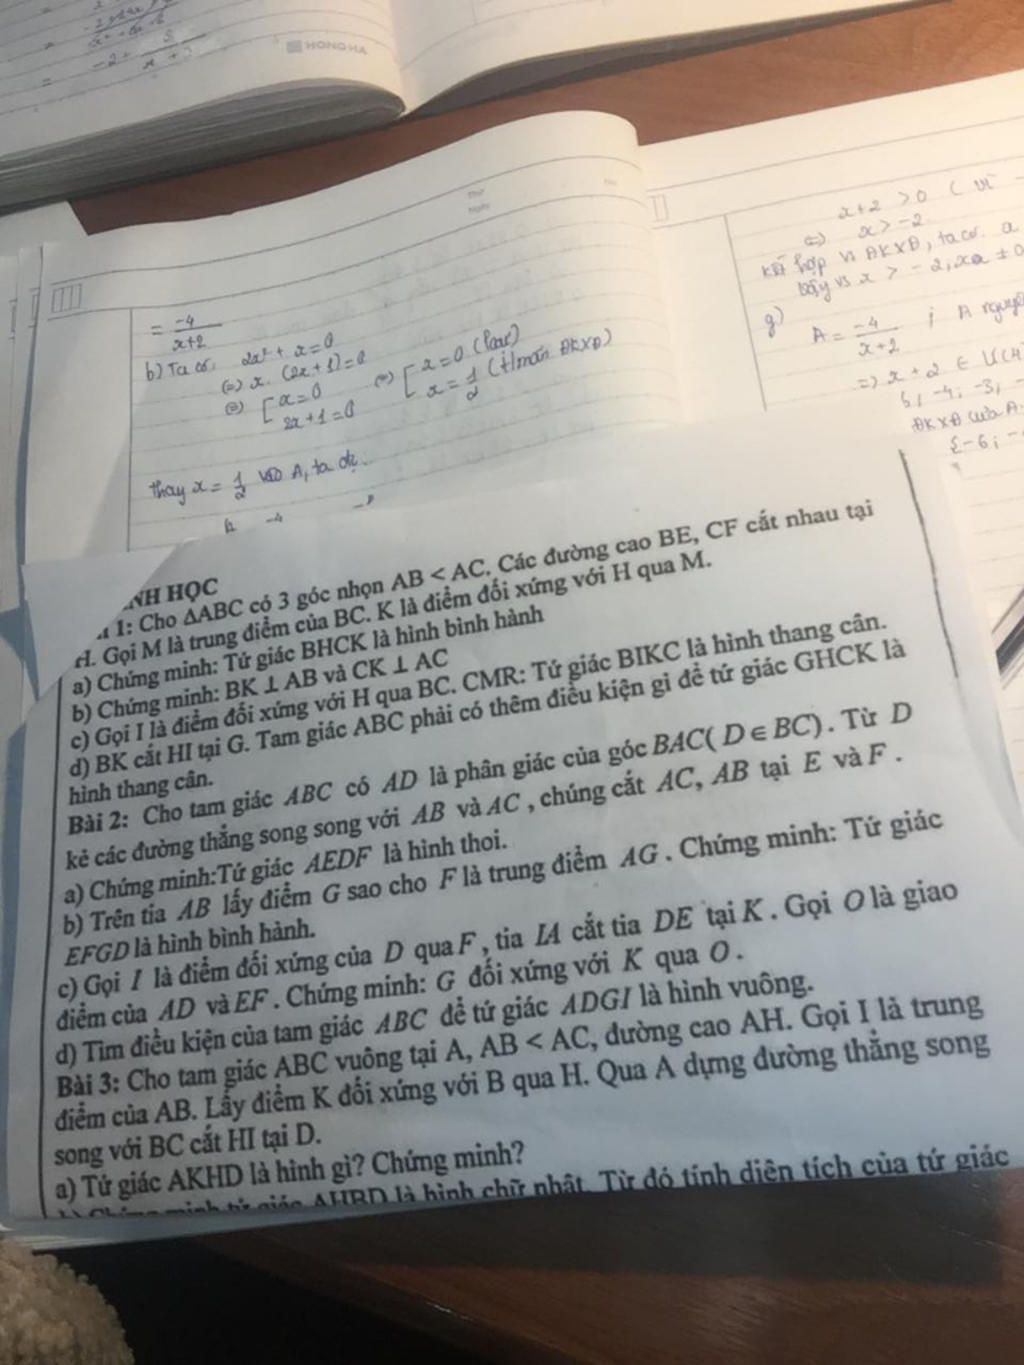 HONG HA
= -4/(x+2)
b) Ta có, 2x² + x = 0
(=) x. (2x + 1) = 0
(=) [ x = 0
2x + 1 = 0
(=) [ x = 0 (loại)
x = 1/2 (t/mãn ĐKXĐ)
thay x = 1/2 vào A, ta đc
x + 2 > 0 ( vì
(=) x > -2
kết hợp vs ĐKXĐ, ta có.
vậy vs x > -2,
g) A = -4/(x+2) ; A nguyên
=> x + 2 ∈ Ư(4)
ĐKXĐ của A
{-6;
NH HỌC
1: Cho ΔABC có 3 góc nhọn AB < AC. Các đường cao BE, CF cắt nhau tại
H. Gọi M là trung điểm của BC. K là điểm đối xứng với H qua M.
a) Chứng minh: Tứ giác BHCK là hình bình hành
b) Chứng minh: BK ⊥ AB và CK ⊥ AC
c) Gọi I là điểm đối xứng với H qua BC. CMR: Tứ giác BIKC là hình thang cân.
d) BK cắt HI tại G. Tam giác ABC phải có thêm điều kiện gì để tứ giác GHCK là
hình thang cân.
Bài 2: Cho tam giác ABC có AD là phân giác của góc BAC( D ∈ BC). Từ D
kẻ các đường thẳng song song với AB và AC , chúng cắt AC, AB tại E và F .
a) Chứng minh:Tứ giác AEDF là hình thoi.
b) Trên tia AB lấy điểm G sao cho F là trung điểm AG . Chứng minh: Tứ giác
EFGD là hình bình hành.
c) Gọi I là điểm đối xứng của D qua F , tia IA cắt tia DE tại K . Gọi O là giao
điểm của AD và EF . Chứng minh: G đối xứng với K qua O .
d) Tìm điều kiện của tam giác ABC để tứ giác ADGI là hình vuông.
Bài 3: Cho tam giác ABC vuông tại A, AB < AC, đường cao AH. Gọi I là trung
điểm của AB. Lấy điểm K đối xứng với B qua H. Qua A dựng đường thẳng song
song với BC cắt HI tại D.
a) Tứ giác AKHD là hình gì? Chứng minh?
b) Chứng minh tứ giác AHBD là hình chữ nhật. Từ đó tính diện tích của tứ giác